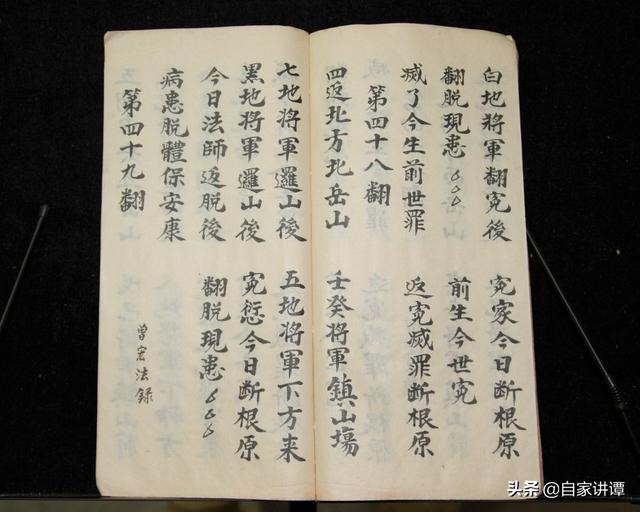 白地將軍翻冤後 冤家今日断根原
翻脱現患〻〻〻 前生今世冤
滅了今生前世罪 返冤滅罪断根原
第四十八翻
四返北方北岳山 壬癸將軍鎮山塲
七地將軍邏山後 五地將軍下方来
黑地將軍邏山後 冤愆今日断根原
今日法師返脱後 翻脱現患〻〻〻
病患脱體保安康
第四十九翻
曾宏法録
头条 @自家讲谭